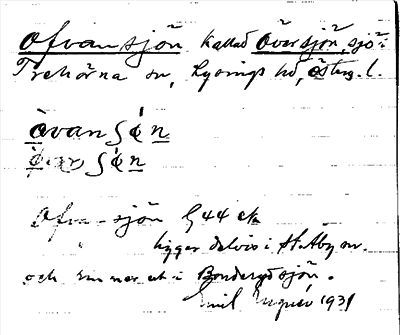 Ofvansjön kallad Översjön, sjö i
Trehörna sn, Lysings hd, Österg. l.
òvanʃǿn
ǿverʃǿn
Ofvansjön § 44 eka
ligger delvis i St. Åby sn.
och rinner ut i Bondarydsjön.
Emil 1931